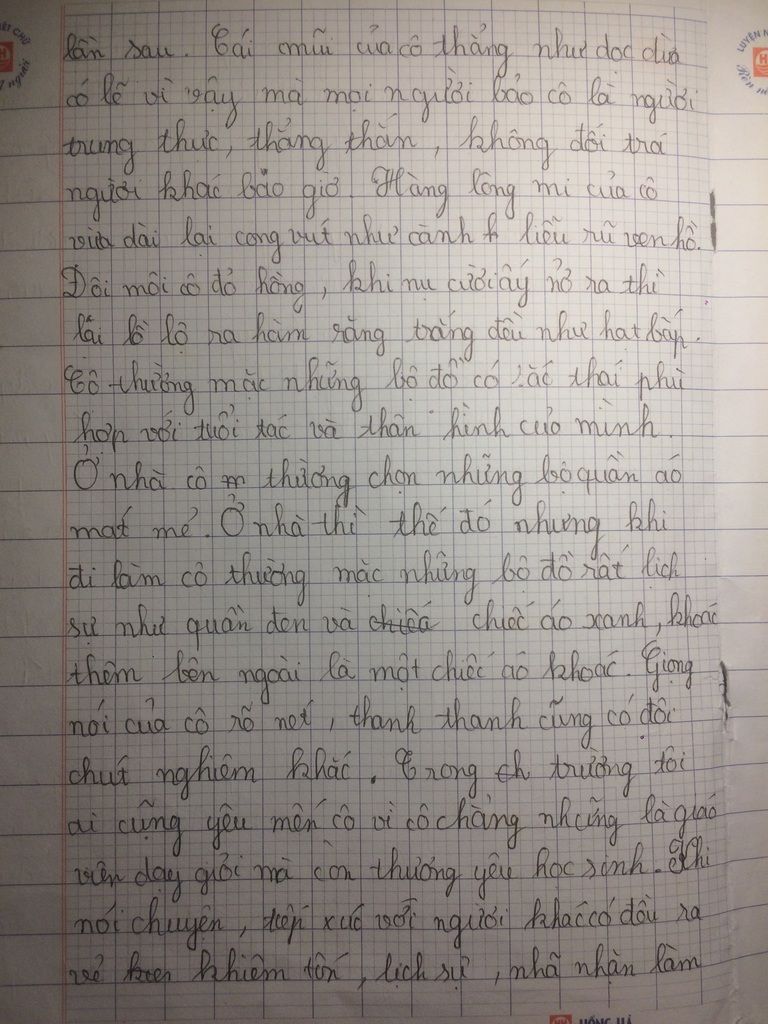 lần sau. Cái mũi của cô thẳng như dọc dừa
có lẽ vì vậy mà mọi người bảo cô là người
trung thực, thẳng thắn, không dối trá
người khác bao giờ. Hàng lông mi của cô
vừa dài lại cong vút như cành liễu rũ ven hồ.
Đôi môi cô đỏ hồng, khi nụ cười ấy nở ra thì
lại lồ lộ ra hàm răng trắng đều như hạt bắp.
Cô thường mặc những bộ đồ có sắc thái phù
hợp với tuổi tác và thân hình của mình.
Ở nhà cô thường chọn những bộ quần áo
mát mẻ. Ở nhà thì thế đó nhưng khi
đi làm cô thường mặc những bộ đồ rất lịch
sự như quần đen và chiếc áo xanh, khoác
thêm bên ngoài là một chiếc áo khoác. Giọng
nói của cô rõ nét, thanh thanh cũng có đôi
chút nghiêm khắc. Trong trường tôi
ai cũng yêu mến cô vì cô chẳng những là giáo
viên dạy giỏi mà còn thương yêu học sinh. Khi
nói chuyện, tiếp xúc với người khác cô đều ra
vẻ khiêm tốn, lịch sự, nhã nhặn làm
HỒNG HÀ